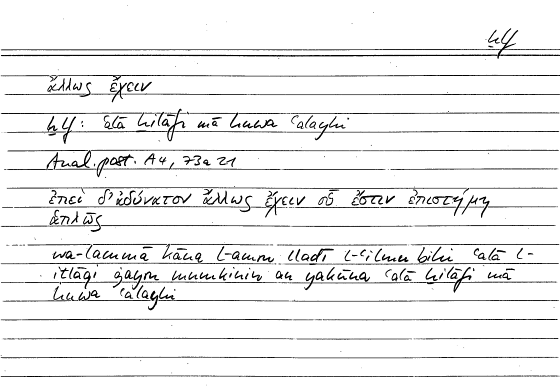 ḫlf
ἄλλως ἔχειν
ḫlf: ʿalā ḫilāfi mā huwa ʿalayhi
Anal. post. A 4, 73a 21
ἐπεὶ δ' ἀδύνατον ἄλλως ἔχειν οὗ ἔστιν ἐπιστήμη
ἁπλῶς
wa-lammā kāna l-amru lladī l-ʿilmu bihi ʿalā l-
iṭlāqi ġayra mumkinin an yakūna ʿalā ḫilāfi mā
huwa ʿalayhi